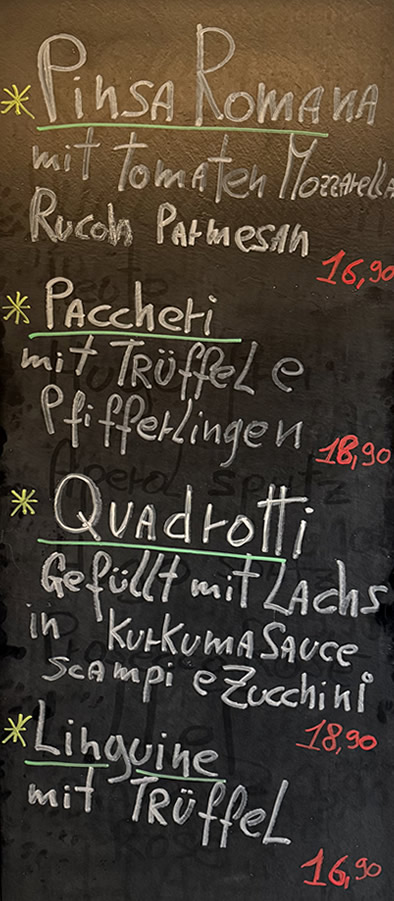 * Pinsa Romana
mit Tomaten Mozzarella
Rucola Parmesan
16,90
* Paccheri
mit Trüffel e
Pfifferlingen
18,90
* Quadrotti
Gefüllt mit Lachs
in Kurkuma Sauce
Scampi e Zucchini
18,90
* Linguine
mit Trüffel
16,90